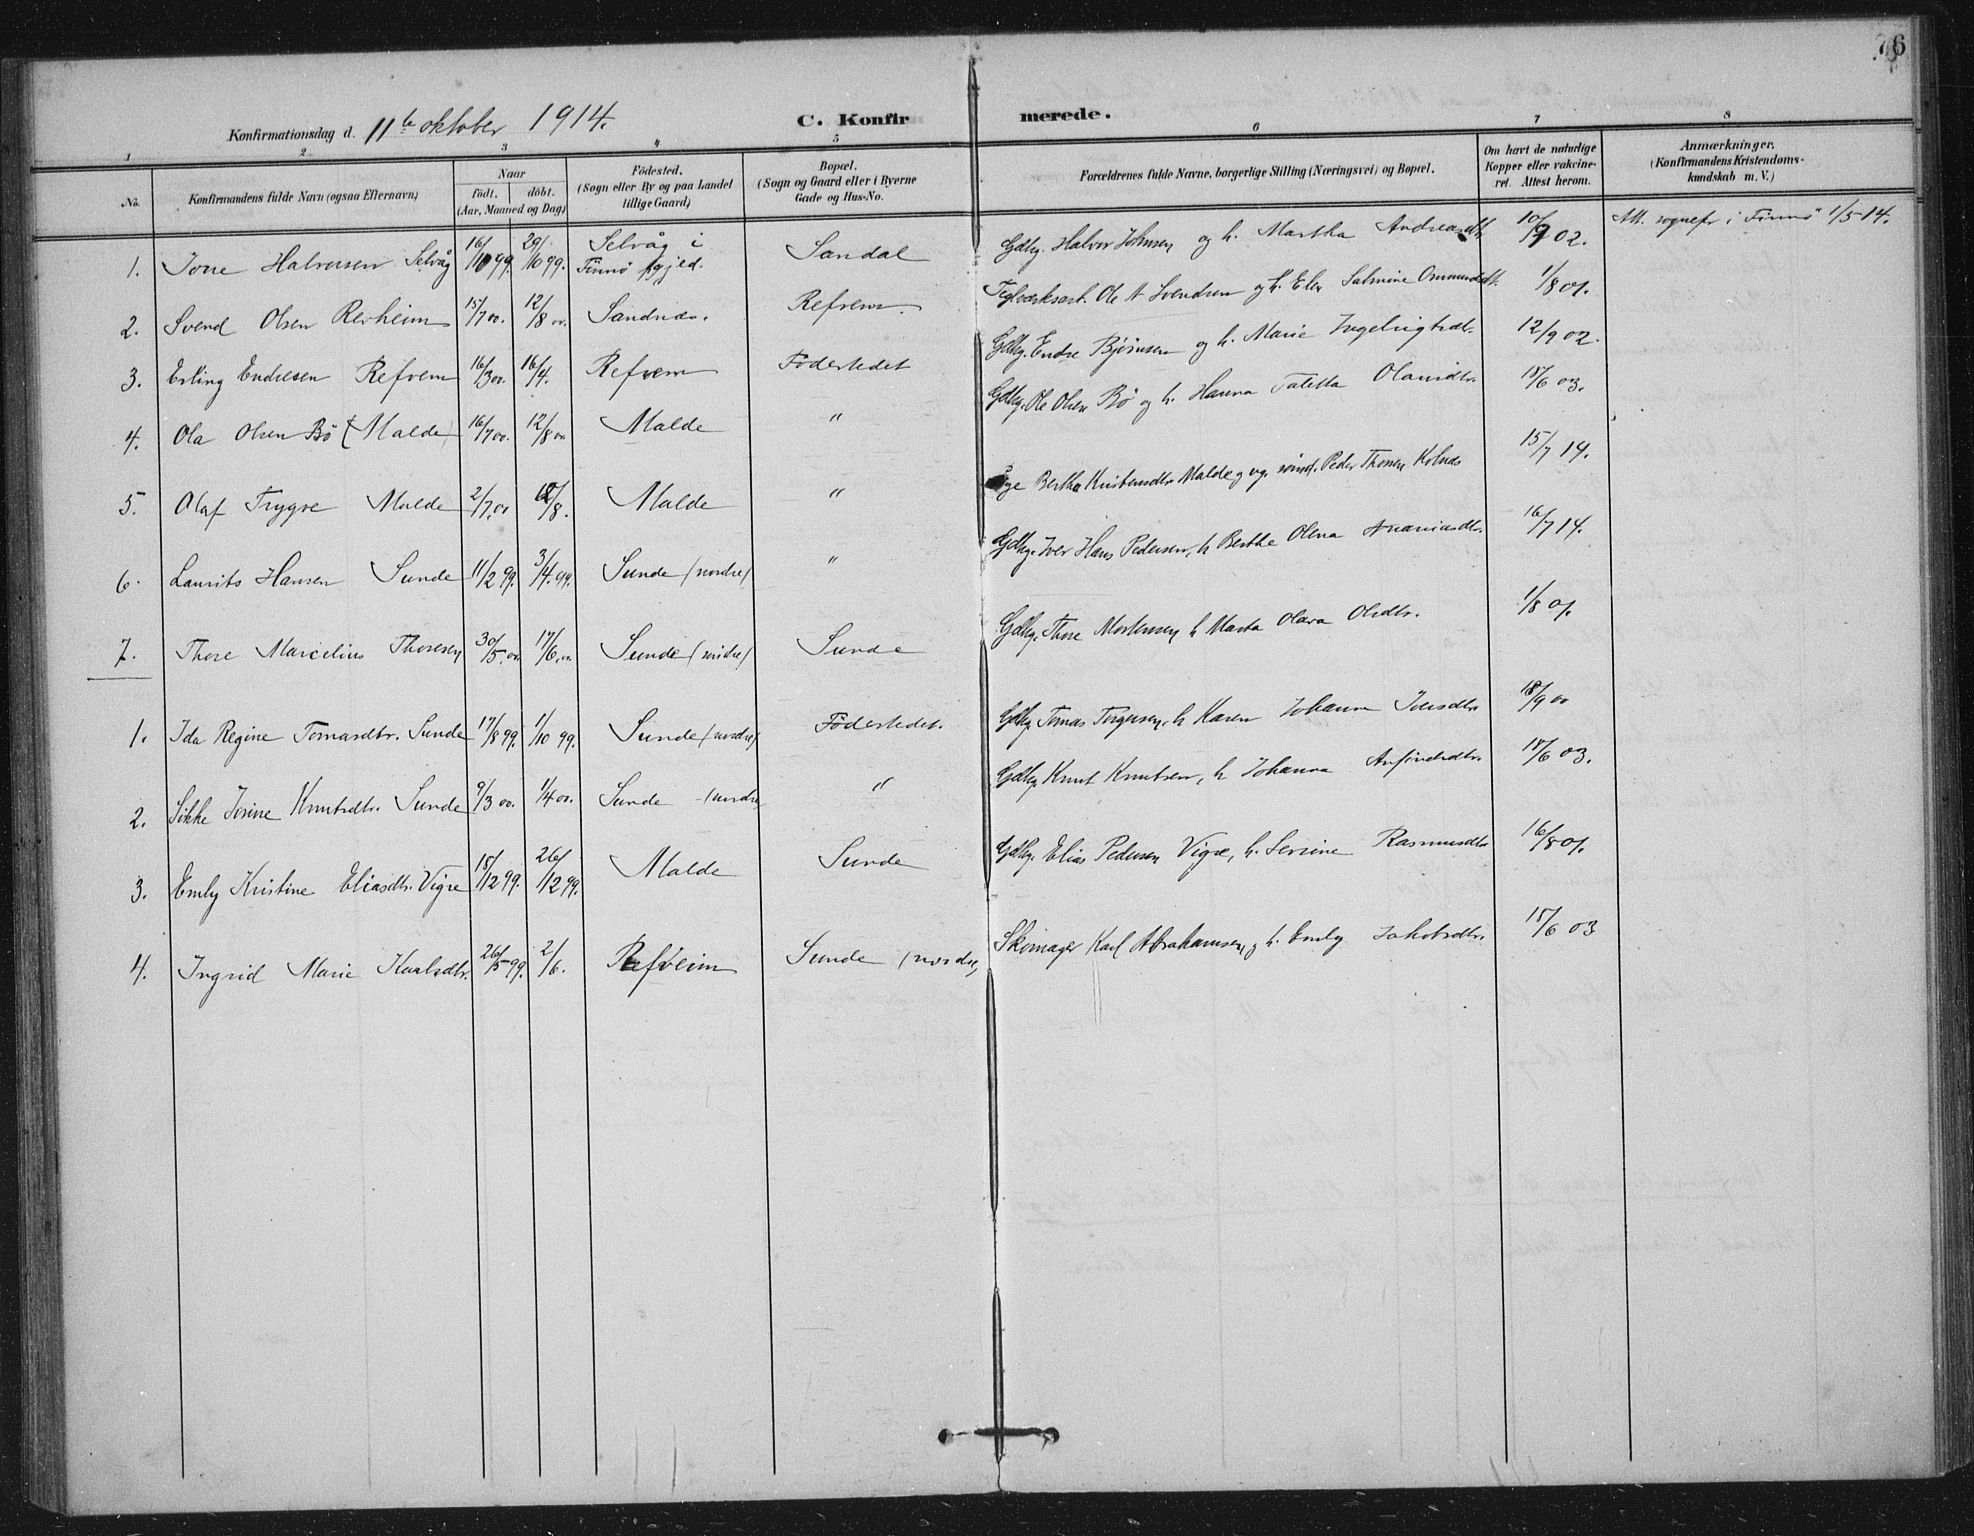 76
Konfirmationsdag d. 11te oktober 1914. C. Konfirmerede.
1 2 3 4 5 6 7 8
No.
Konfirmandens fulde Navn (ogsaa Efternavn)
Naar
födt. döbt.
(Aar, Maaned og Dag)
Födested.
(Sogn eller By og paa Landet
tillige Gaard)
Bopæl.
(Sogn og Gaard eller i Byerne
Gade og Hus-No.
Forældrenes fulde Navne, borgerlige Stilling (Næringsvei) og Bopæl.
Om havt de naturlige
Kopper eller vakcine-
ret. Attest herom.
Anmærkninger.
(Konfirmandens Kristendoms-
kundskab m. V.)
1. Tore Halvorsen Selvåg 16/10 99. 29/10 99. Selvåg i Sandal Gdbg. Halvor Johnsen og h. Martha Andreasdt. 10/9 02. Att. sognepr i Finnö 1/5 14.
Finnö pgjed.
2. Svend Olsen Revheim 15/7 00. 12/8 00. Sandnæs. Refvem. Teglværksarb. Ole A Svendsen og h. Elen Salmine Ommundsdt. 1/8 01.
3. Erling Endresen Refvem 16/3 00. 16/4. Refvem Födestedet Gdbg. Endre Björnsen og h. Marie Ingebrigtsdt. 12/9 02.
4. Ola Olsen Bö (Malde) 16/7 00. 12/8 00. Malde " Gdbg. Ole Olsen Bö og h. Hanna Taletta Olausdtr. 18/6 03.
5. Olaf Trygve Malde 2/7 00 12/8. Malde " Pige Bertha Kristensdtr. Malde og ug. Peder Thorsen 15/7 14.
6. Laurits Hansen Sunde 11/2 99. 3/4 99. Sunde (nordre) " Gdbg. Iver Hans Pedersen, h Berthe Olena Ananiasdtr. 16/7 14.
7. Thore Marcelius Thoresen 30/5 00. 17/6 00. Sunde (söndre) Sunde Gdbg. Thore Mortensen, h Marta Olava Olsdtr. 1/8 01.
1. Ida Regine Tomasdtr. Sunde 17/8 99. 1/10 99. Sunde (nordre) Födestedet. Gdbg. Tomas Torgersen, h Karen Johanna Iversdtr. 18/9 00
2. Sikke Josine Knutsdtr. Sunde 9/3 00. 1/4 00. Sunde (nordre) " Gdbg. Knut Knutsen, h Johanna Anfindsdtr. 18/6 03.
3. Emly Kristine Eliasdtr. Vigre 18/12 99. 26/12 99. Malde Sunde Gdbg. Elias Pedersen Vigre, h. Serine Rasmusdtr. 16/8 01.
4. Ingrid Marie Karlsdtr. 26/5 99. 2/6. Refveim Sunde (nordre) Skomager Karl Abrahamsen og h. Emly Jakobsdtr. 18/6 03